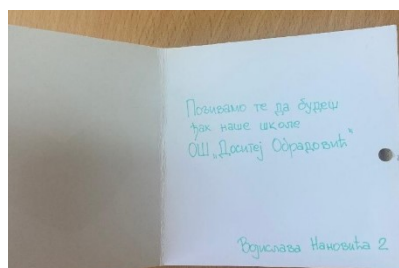 Позивамо те да будеш
ђак наше школе
ОШ „Доситеј Обрадовић“
Војислава Нановића 2